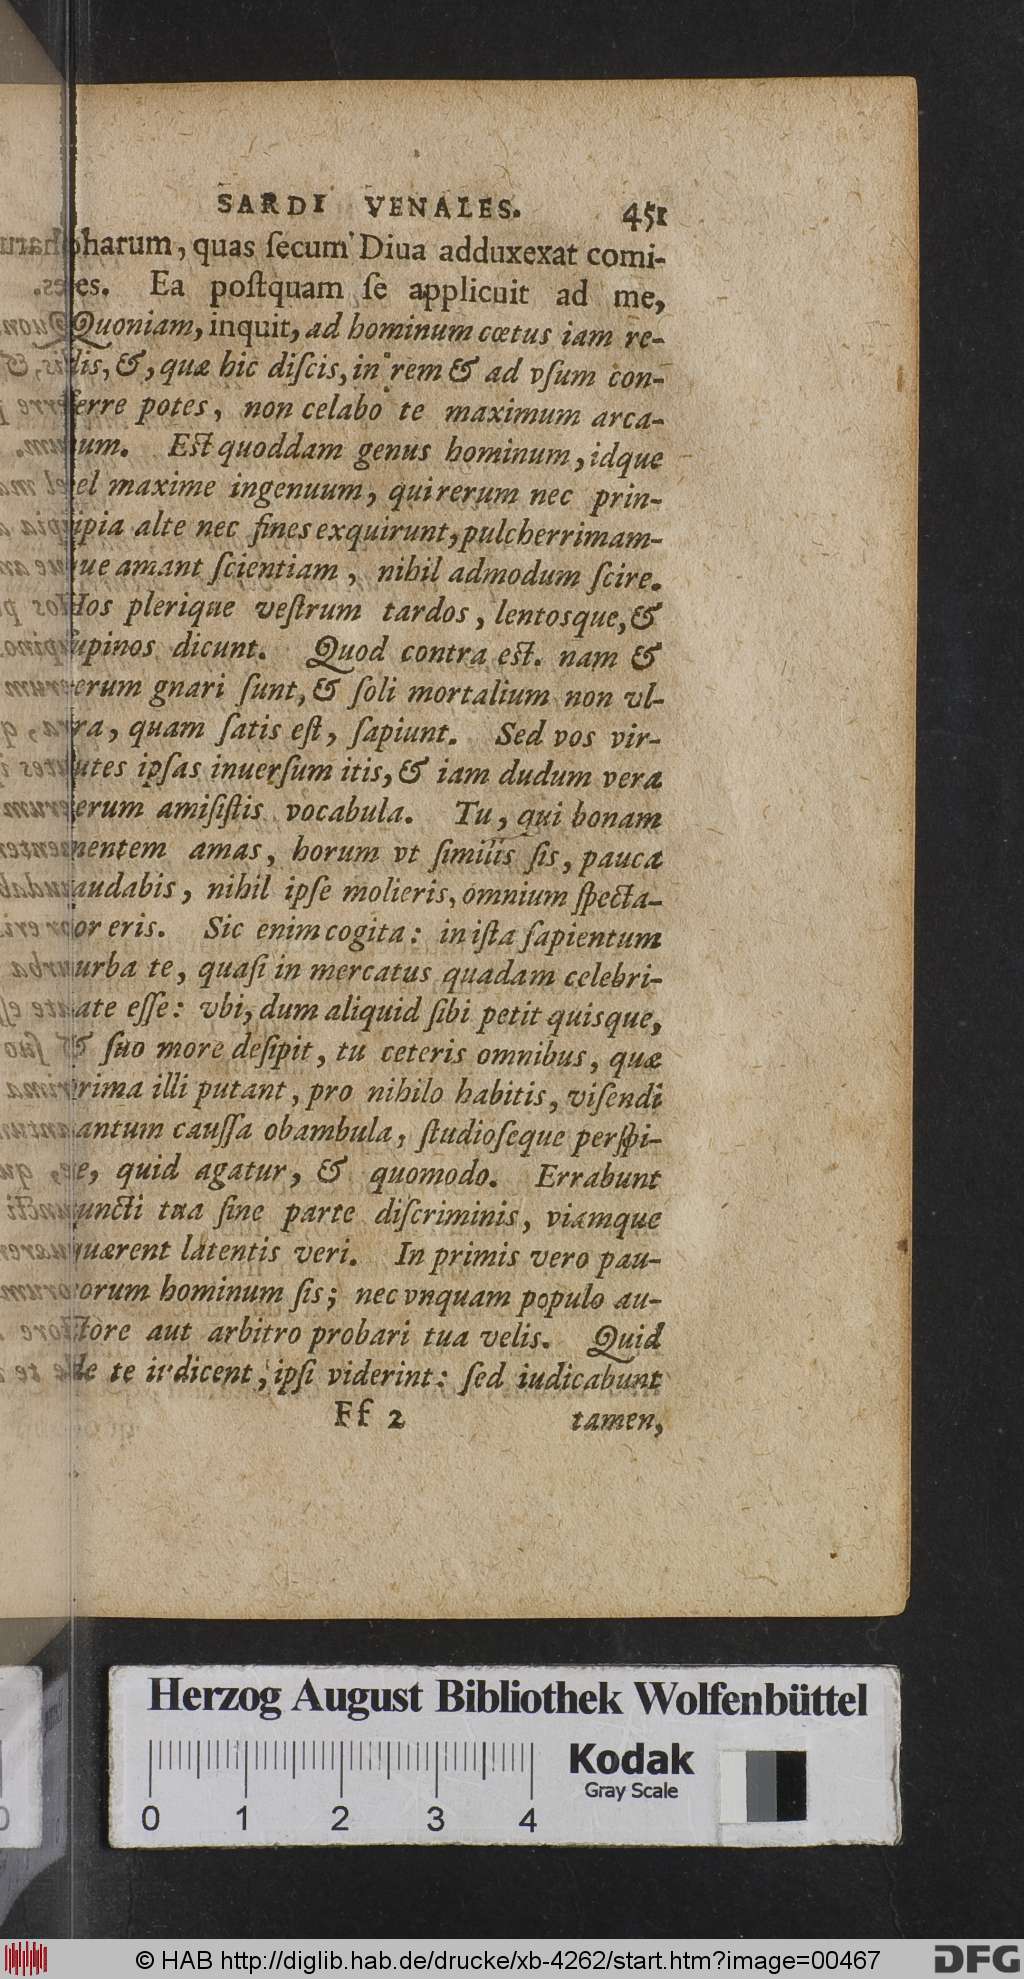 SARDI VENALES. 451
pharum, quas ſecum Diua adduxexat comi-
es. Ea poſtquam ſe applicuit ad me,
Quoniam, inquit, ad hominum cœtus iam re-
dis, &, quæ hic diſcis, in rem & ad vſum con-
ferre potes, non celabo te maximum arca-
num. Est quoddam genus hominum, idque
vel maxime ingenuum, qui rerum nec prin-
cipia alte nec fines exquirunt, pulcherrimam-
que amant ſcientiam, nihil admodum ſcire.
Hos plerique veſtrum tardos, lentosque, &
ſupinos dicunt. Quod contra est. nam &
rerum gnari ſunt, & ſoli mortalium non vl-
tra, quam ſatis eſt, ſapiunt. Sed vos vir-
tutes ipſas inuerſum itis, & iam dudum vera
rerum amiſiſtis vocabula. Tu, qui bonam
mentem amas, horum vt ſimilis ſis, pauca
laudabis, nihil ipſe molieris, omnium ſpecta-
tor eris. Sic enim cogita: in iſta ſapientum
turba te, quaſi in mercatus quadam celebri-
tate eſſe: vbi, dum aliquid ſibi petit quisque,
& ſuo more deſipit, tu ceteris omnibus, quæ
prima illi putant, pro nihilo habitis, viſendi
tantum cauſſa obambula, ſtudioſeque perſpi-
ce, quid agatur, & quomodo. Errabunt
cuncti tua ſine parte diſcriminis, viamque
quærent latentis veri. In primis vero pau-
corum hominum ſis; nec vnquam populo au-
ctore aut arbitro probari tua velis. Quid
de te iudicent, ipſi viderint: ſed iudicabunt
Ff 2 tamen,
Herzog August Bibliothek Wolfenbüttel
Kodak
Gray Scale
0 1 2 3 4
© HAB http://diglib.hab.de/drucke/xb-4262/start.htm?image=00467
DFG